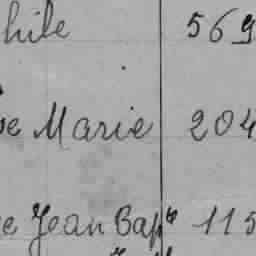 hile 569
ve Marie 204
e Jean Bapte 115